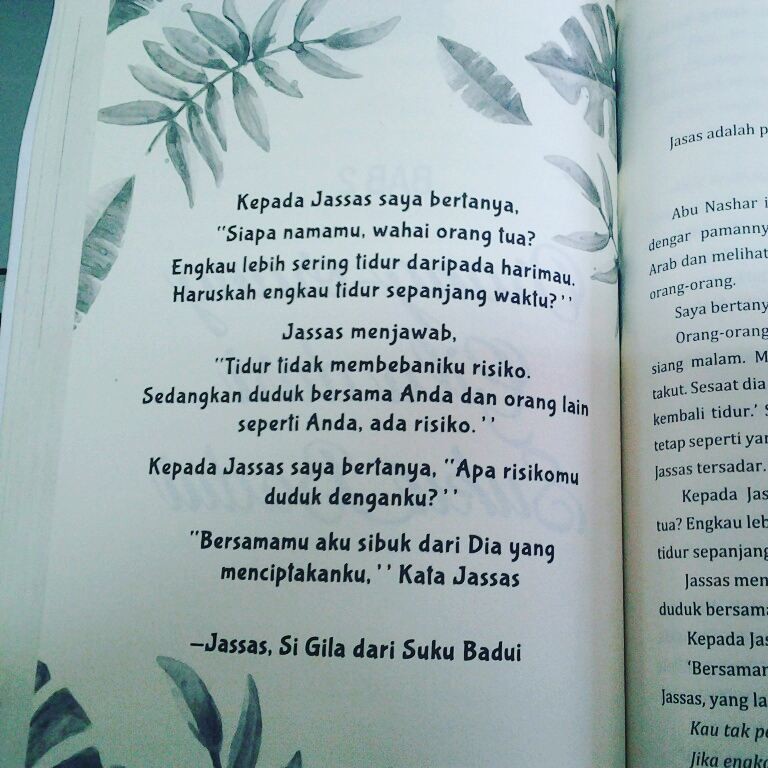 Kepada Jassas saya bertanya,
"Siapa namamu, wahai orang tua?
Engkau lebih sering tidur daripada harimau.
Haruskah engkau tidur sepanjang waktu?''
Jassas menjawab,
"Tidur tidak membebaniku risiko.
Sedangkan duduk bersama Anda dan orang lain
seperti Anda, ada risiko.''
Kepada Jassas saya bertanya, "Apa risikomu
duduk denganku?''
"Bersamamu aku sibuk dari Dia yang
menciptakanku,'' Kata Jassas
—Jassas, Si Gila dari Suku Badui
Jasas adalah
Abu Nashar
dengar pamannya
Arab dan melihat
orang-orang.
Saya
Orang-orang
siang malam.
takut. Sesaat dia
kembali tidur.'
tetap seperti
Jassas tersadar.
Kepada
tua? Engkau
tidur sepanjang
Jassas
duduk
Kepada
Jassas, yang
Kau tak
Jika